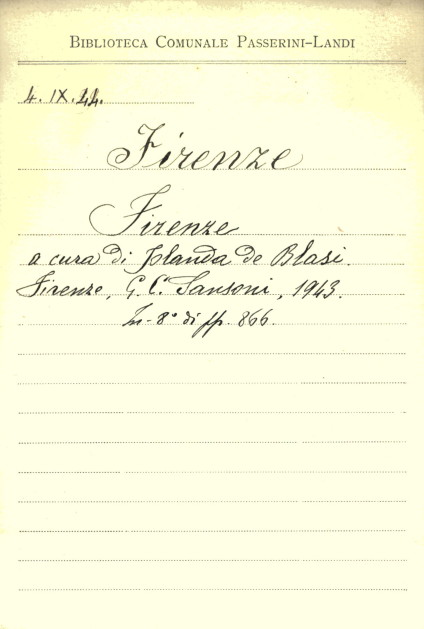 BIBLIOTECA COMUNALE PASSERINI-LANDI
4. IX. 44.
Firenze
Firenze
a cura di Jolanda de Blasi.
Firenze, G. C. Sansoni, 1943.
In-8° di pp. 866.